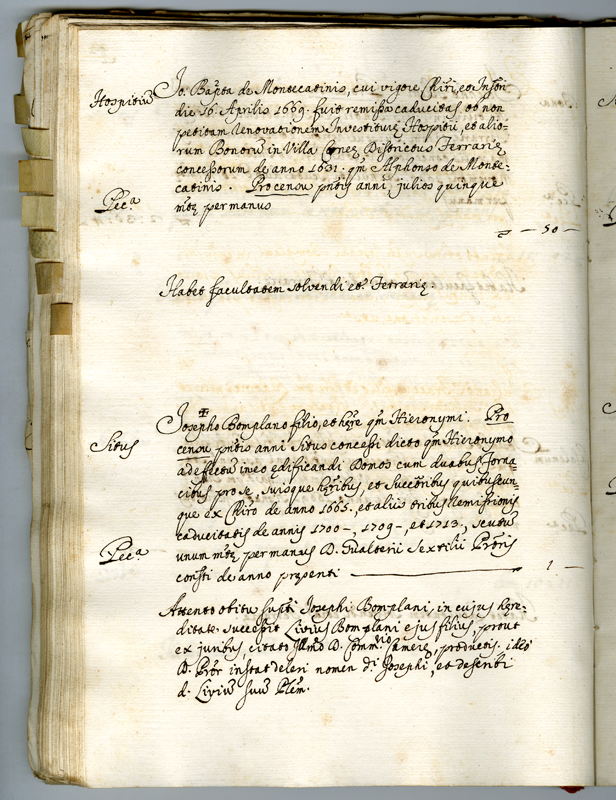 Hospitiũ
A Jo. Bap̃ta de Montecatinis, cui vigore Chir̃i, et Instr̃i
die 16. Aprilis 1669. fuit remissa caducitas ob non
petitam renovationem Investiturę Hospitii, et alio-
rum Bonorũ in Villa Districtus Ferrarię
concessorum de anno 1631. qm̃ Alphonso de Monte-
catinis. Pro censu pñtis anni, julios quinque
Pec.a
mtę per manus
— 50 —
Habet facultatem solvendi Ferrarię.
A Josepho Bomplano filio, et hęre qm̃ Hieronymi. Pro
Situs
censu pñtis anni Situs concessi dicto qm̃ Hieronymo
ad effectũ in eo ędificandi Domos cum duabus forna-
cibus pro se, suisque hęribus, et Succr̃ibus quibuscun-
que ex Chir̃o de anno 1665. et aliis tribus remissionis
caducitatis de annis 1700 -, 1709 -, et 1713., scutũ
Pec.a
unum mtę per manus D. Gualterii Sextilii Prõris
consti de anno pręsenti — 1 —
Attento obitu supti Josephi Bomplani, in cujus hęre-
ditate successit Livius Bomplani ejus filius, prout
ex juribus, citato Illm̃o D. Comm.rio Camerę, productis. ideo
D. Pror̃ instat deleri nomen di. Josephi, et describi
d. Liviũ suũ Plem̃.